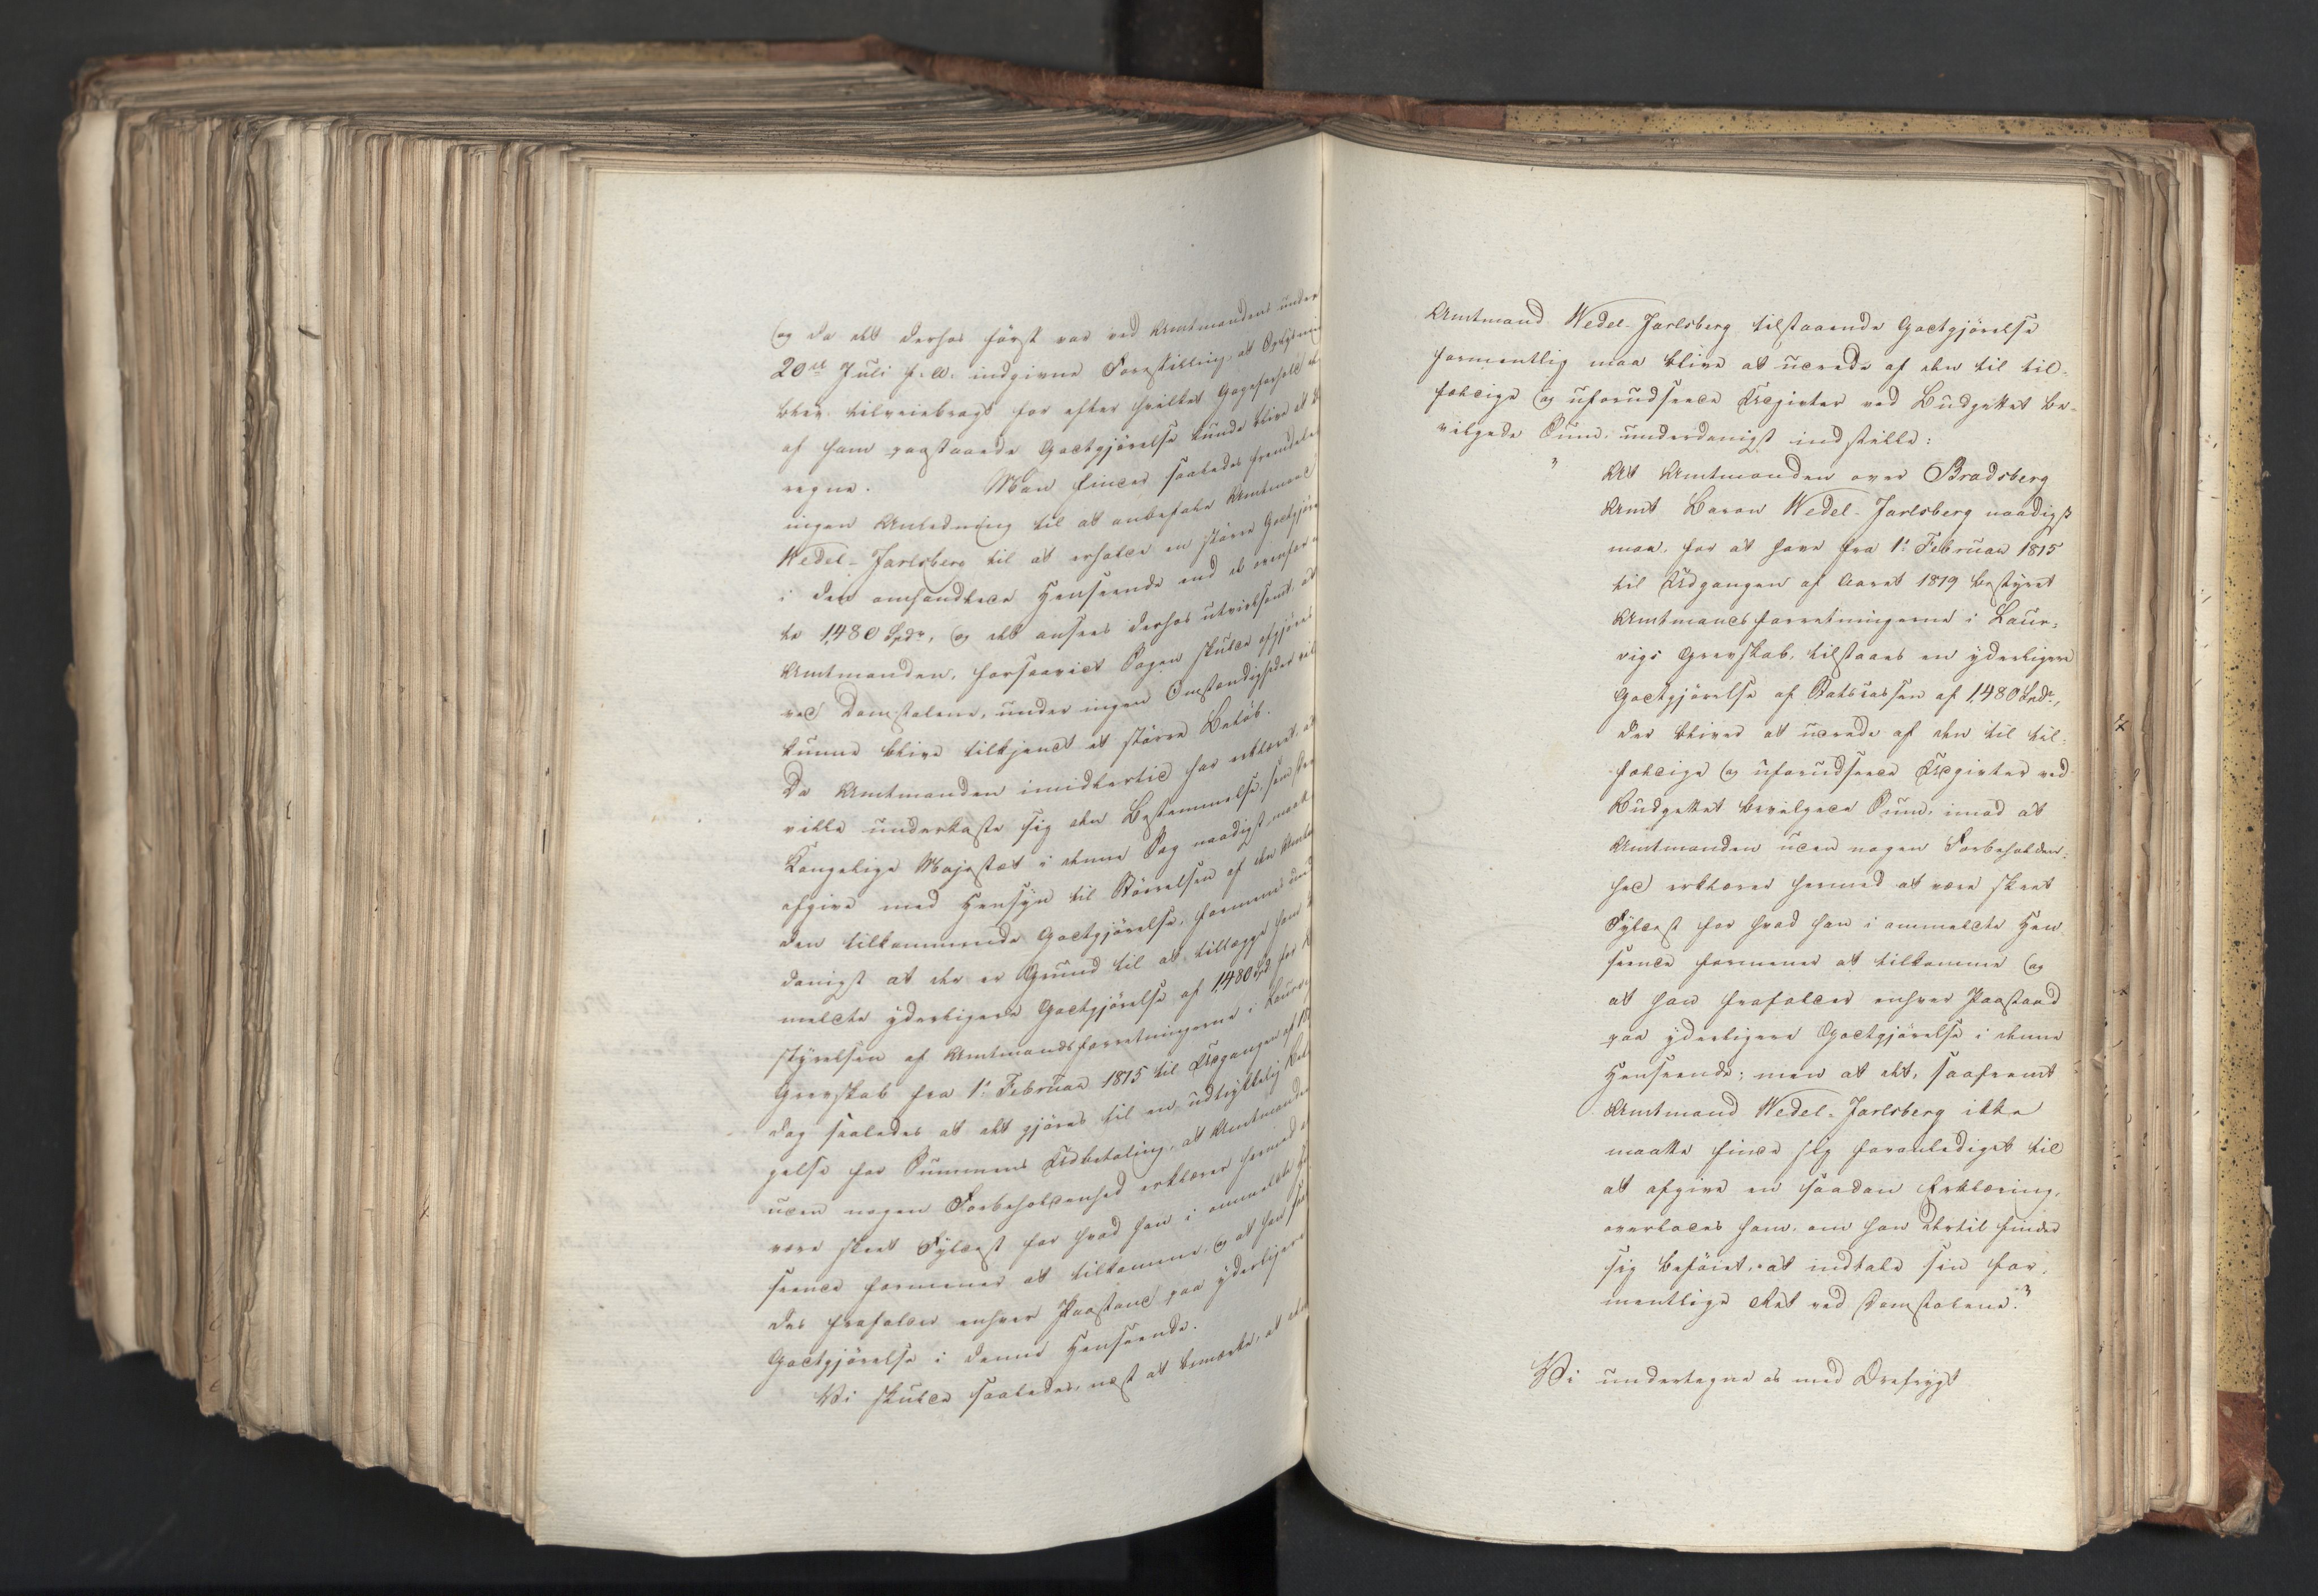 og da det derhos først var ved Amtmandens under
20de Juli f. A. indgivne Forestilling, at Oplysning
blev tilveiebragt for efter hvilket Gageforhold den
af ham paastaaede Godtgjørelse kunde blive at be
regne. Man finder saaledes fremdeles
ingen Anledning til at anbefale Amtmand
Wedel-Jarlsberg til at erholde en større Godtgjøre
i den omhandlede Henseende end de ovenfor
te 1480 Spdr, og det ansees derhos utvivlsomt, at
Amtmanden, forsaavidt Sagen skulde afgjøres
ved Domstolene, under ingen Omstændigheder vil
kunne blive tilkjendt et større Beløb.
Da Amtmanden imidlertid har erklæret, at
ville underkaste sig den Bestemmelse, som
Kongelige Majestæt i denne Sag naadigst maatte
afgive med Hensyn til Størrelsen af den Amtm
den tilkommende Godtgjørelse, formenes un
danigst at der er Grund til at tillægge ham
meldte yderligere Godtgjørelse af 1480 Spd for
styrelsen af Amtmandsforretningerne i Laur
Grevskab fra 1. Februar 1815 til Udgangen af
dog saaledes at det gjøres til en udtrykkelig Bet
gelse for Summens Udbetaling, at Amtmanden
uden nogen Forbeholdenhed erklærer hermed
være skeet Fyldest for hvad han i anmeldte
seende formener at tilkomme, og at han
des frafalder enhver Paastand paa yderligere
Godtgjørelse i denne Henseende.
Vi skulde saaledes, næst at bemærke, at den
Amtmand Wedel-Jarlsberg tilstaaende Godtgjørelse
formentlig maa blive at udrede af den til til-
fældige og uforudseede Udgivter ved Budgettet be-
vilgede Sum, underdanigst indstille:
" At Amtmanden over Bradsberg
Amt Baron Wedel-Jarlsberg naadigst
maa, for at have fra 1. Februar 1815
til Udgangen af Aaret 1819 bestyret
Amtmandsforretningerne i Laur-
vigs Grevskab, tilstaaes en yderligere
Godtgjørelse af Statscassen af 1480 Spdr,
der bliver at udrede af den til til-
fældige og uforudseede Udgivter ved
Budgettet bevilgede Sum, imod at
Amtmanden uden nogen Forbeholden-
hed erklærer hermed at være skeet
Fyldest for hvad han i anmeldte Hen
seende formener at tilkomme og
at han frafalder enhver Paastand
paa yderligere Godtgjørelse i denne
Henseende; men at det, saafremt
Amtmand Wedel-Jarlsberg ikke
maatte finde sig foranlediget til
at afgive en saadan Erklæring,
overlades ham, om han dertil finder
sig beføiet, at indtale sin for-
mentlige Ret ved Domstolene."
Vi undertegne os med Ærefrygt